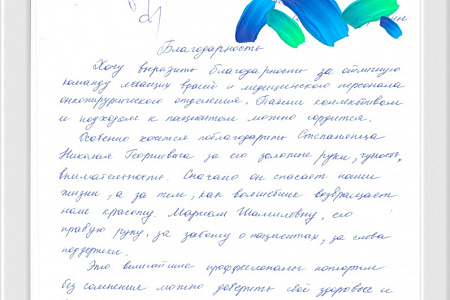 Благодарность
Хочу выразить благодарность за отличную
команду лечащих врачей и медицинского персонала
онкохирургического отделения. Таким коллективом
и подходом к пациентам можно гордится.
Особенно хочется поблагодарить Степаненца
Николая Георгиевича за его золотые руки, чуткость,
внимательность. Сначала он спасает наши
жизни, а за тем, как волшебник возвращает
нам красоту. Мариам Шамиловну, его
правую руку, за заботу о пациентах, за слова
поддержки.
Это величайшие профессионалы которым
без сомнения можно доверить своё здоровье и